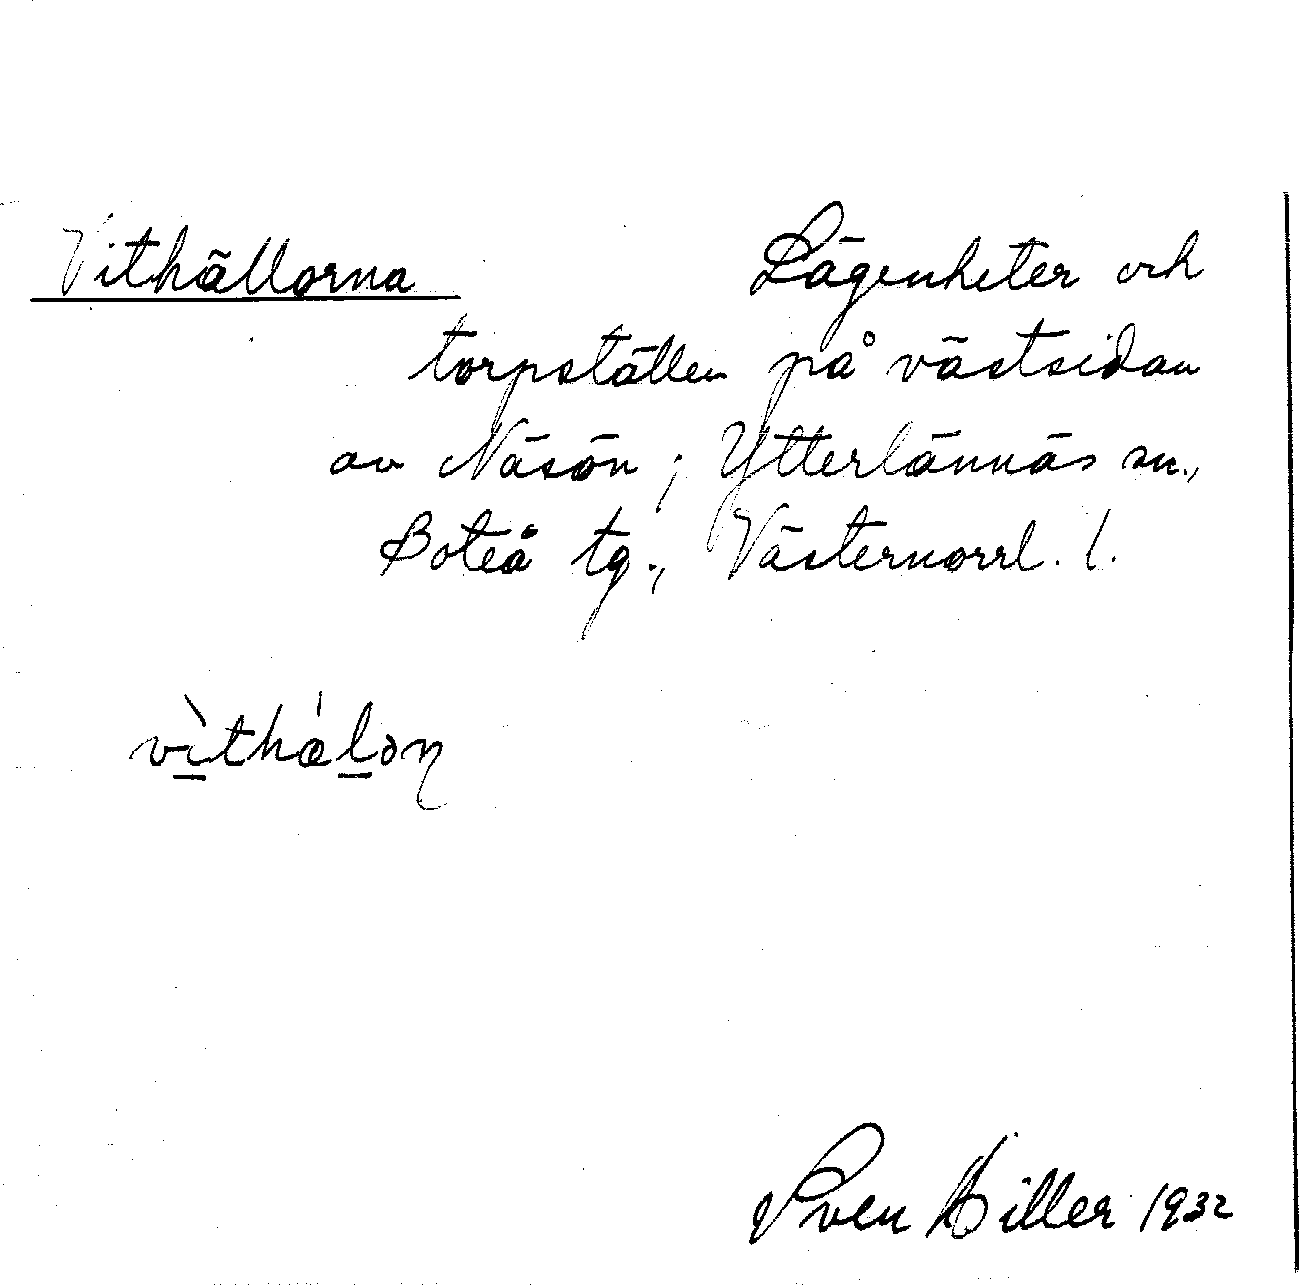 Vithällorna Lägenheter och
torpställen på västsidan
av Näsön; Ytterlännäs sn.,
Boteå tg., Västernorrl. l.
Sven Hiller 1932